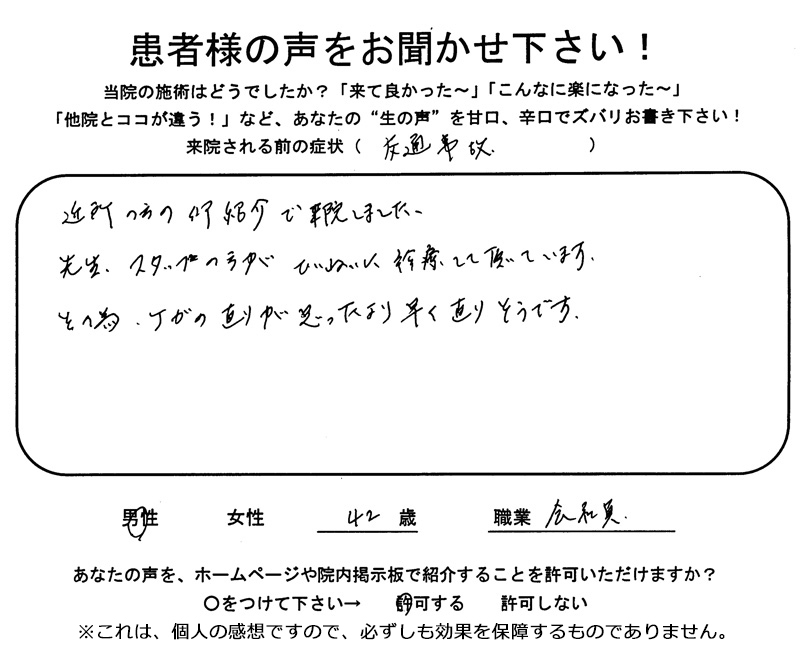 患者様の声をお聞かせ下さい!
当院の施術はどうでしたか?「来て良かった~」「こんなに楽になった~」
「他院とココが違う!」など、あなたの“生の声”を甘口、辛口でズバリお書き下さい!
来院される前の症状( 交通事故. )
近所の方の御紹介で来院しました。
先生、スタッフの方が ていねいに 診療して頂いています.
その為、ケガの直りが思ったより早く直りそうです.
男性 女性 42 歳 職業 会社員.
あなたの声を、ホームページや院内掲示板で紹介することを許可いただけますか?
○をつけて下さい→ 許可する 許可しない
※これは、個人の感想ですので、必ずしも効果を保障するものでありません。